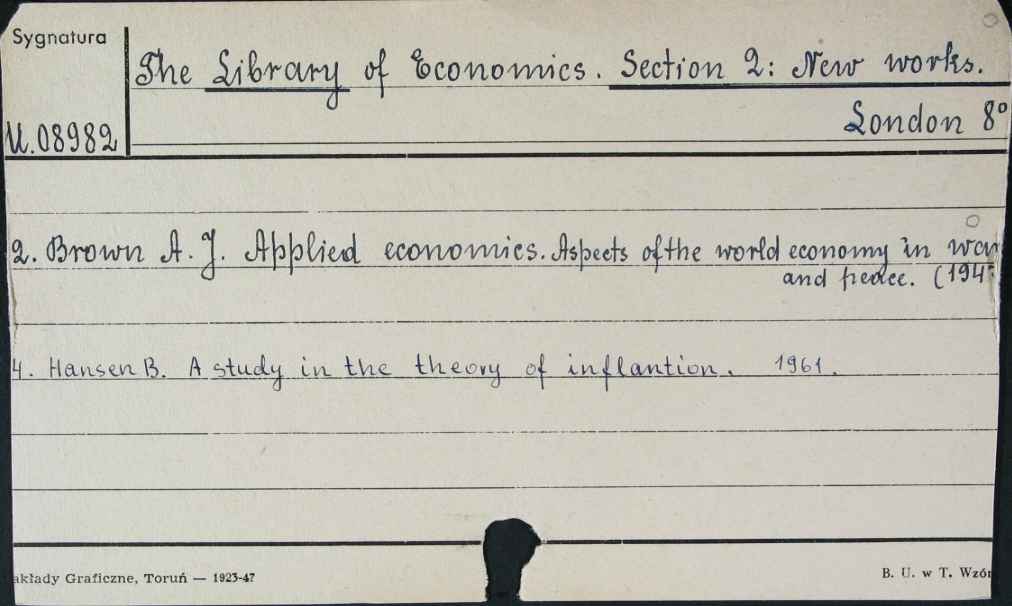 Sygnatura
The Library of Economics. Section 2: New works.
London 8°
U.08982
2. Brown A. J. Applied economics. Aspects of the world economy in war
and peace. (194
4. Hansen B. A study in the theory of inflantion. 1961.
akłady Graficzne, Toruń — 1923-47
B. U. w T. Wzór